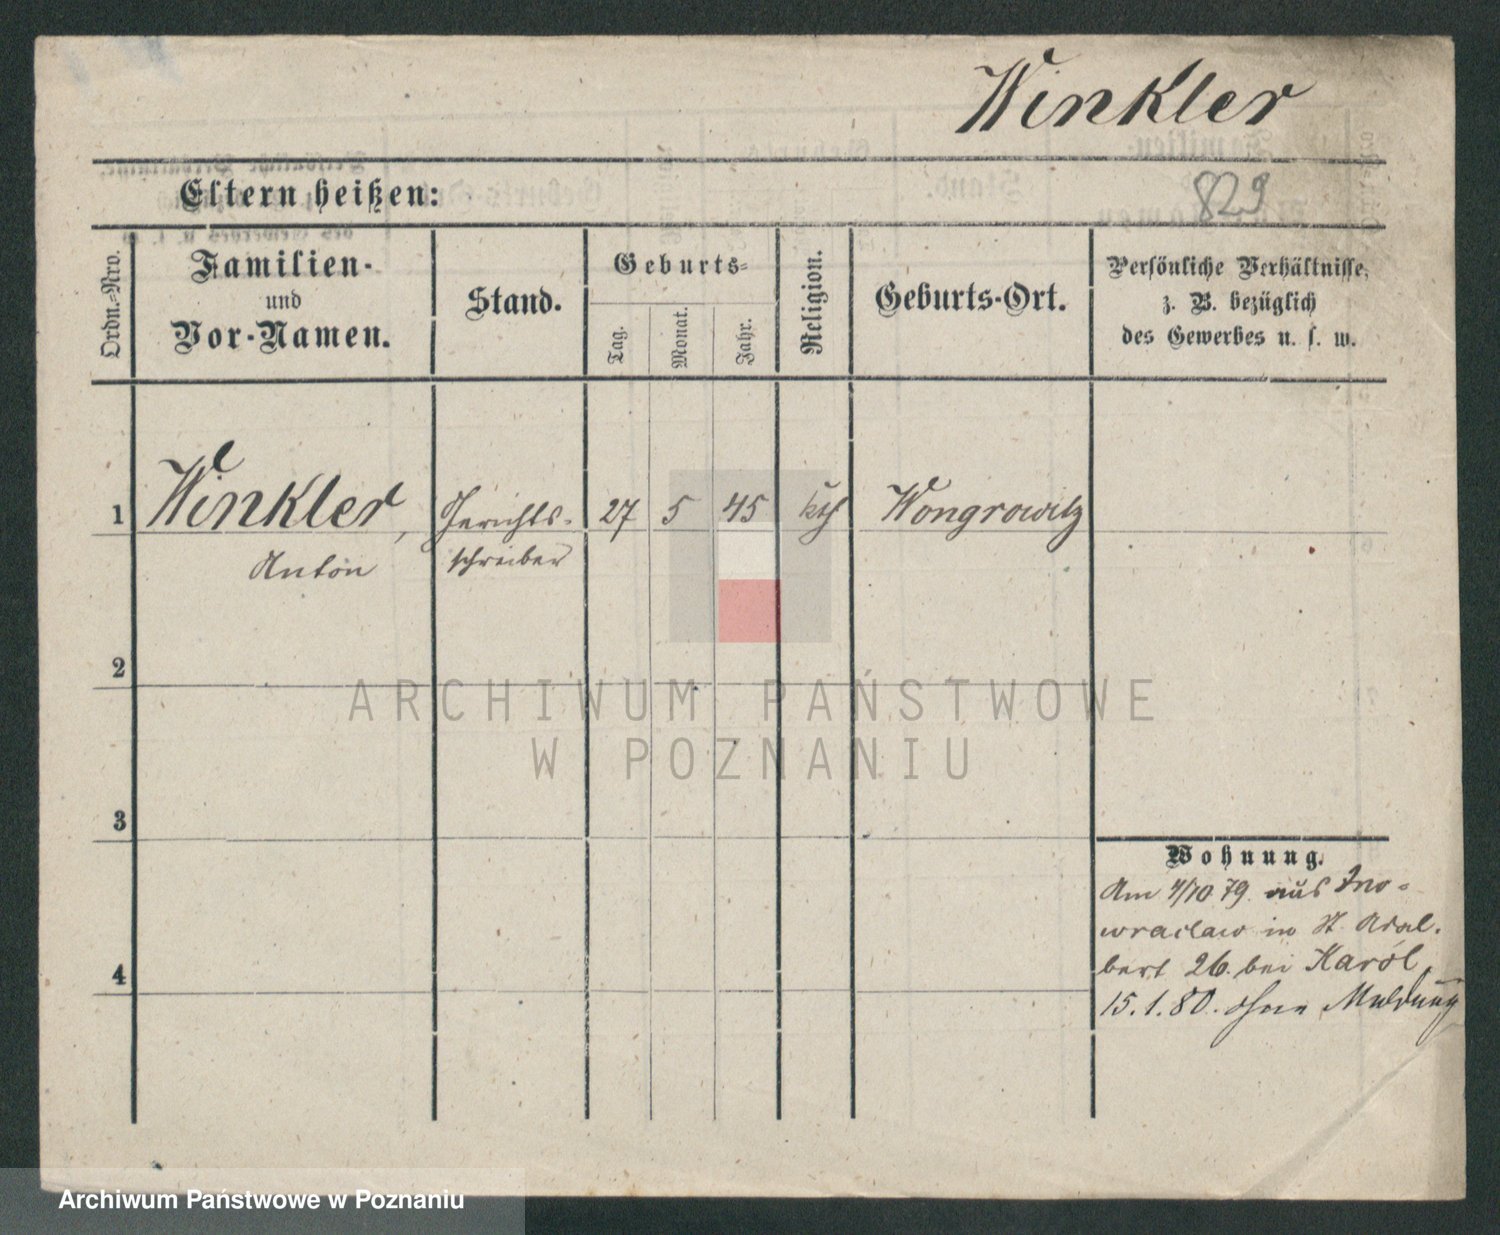 Winkler
829
Eltern heißen:
Ordn.-Nro.
Familien-
und
Vor-Namen.
Stand.
Geburts-
Tag.
Monat.
Jahr.
Religion.
Geburts-Ort.
Persönliche Verhältnisse,
z. B. bezüglich
des Gewerbes u. s. w.
1
Winkler,
Anton
Gerichts-
schreiber
27
5
45
kth
Wongrowitz
2
3
4
ARCHIWUM PAŃSTWOWE
W POZNANIU
Wohnung.
Am 4/10 79. aus Ino-
wraclaw in St. Adal.
bert 26. bei Karól,
15.1.80. ohne Meldung
Archiwum Państwowe w Poznaniu